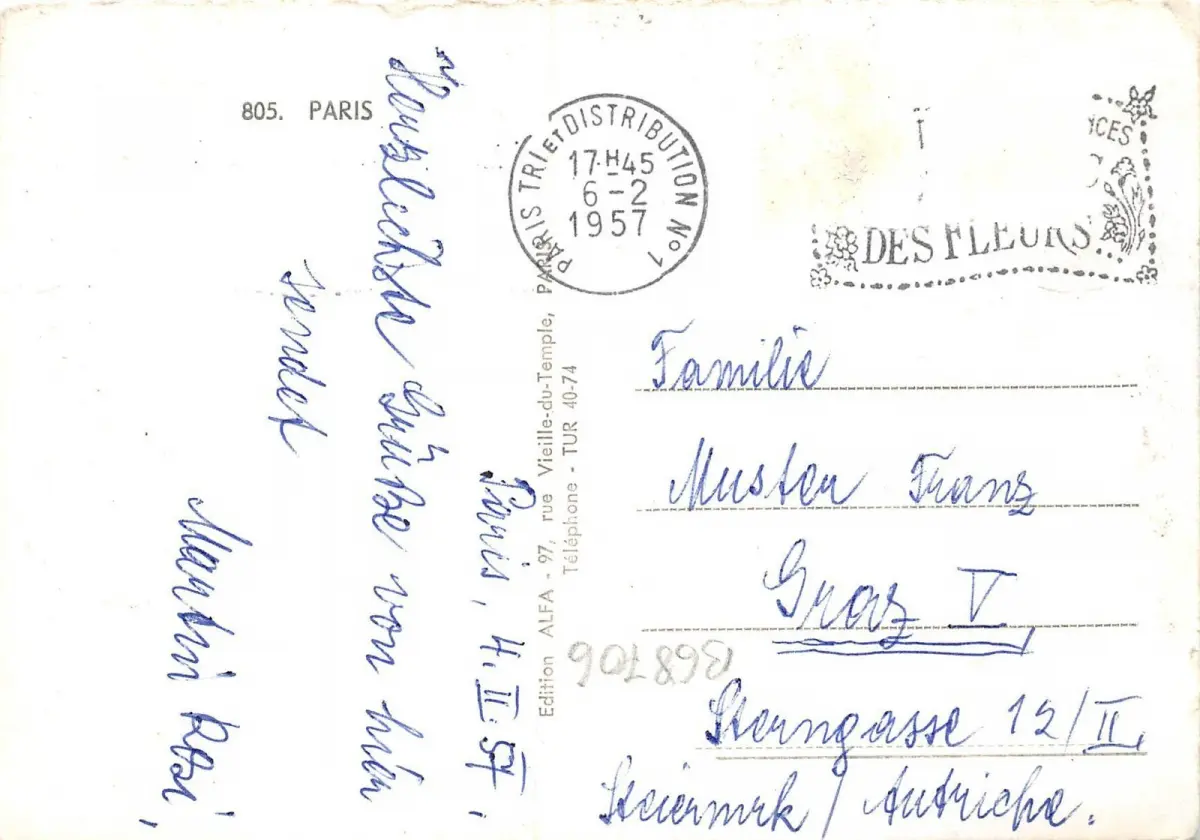 805. PARIS
Paris, 4. II. 57.
Herzlichste Grüße von hier
sendet
Martini Rosi,
Edition ALFA - 97, rue Vieille-du-Temple, PARIS
Téléphone - TUR 40-74
PARIS TRI ET DISTRIBUTION No 1
17H45
6-2
1957
DES FLEURS
Familie
Muster Franz
Graz V,
Sterngasse 12/II,
Steiermrk / Autriche.
B68706